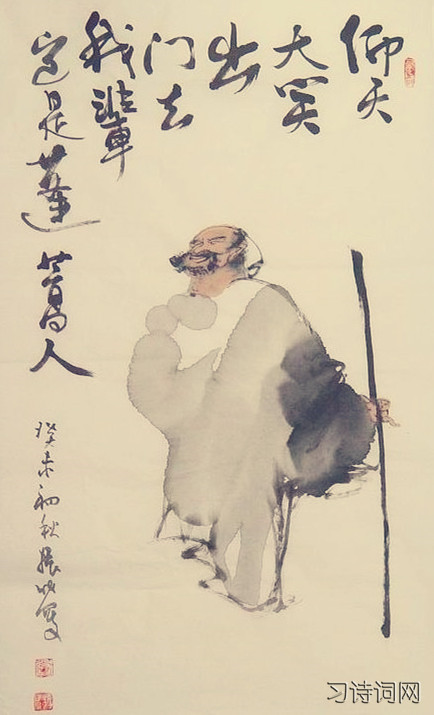 仰天
大笑
出
门去
我輩
岂是蓬蒿人
癸未初秋写
习诗词网